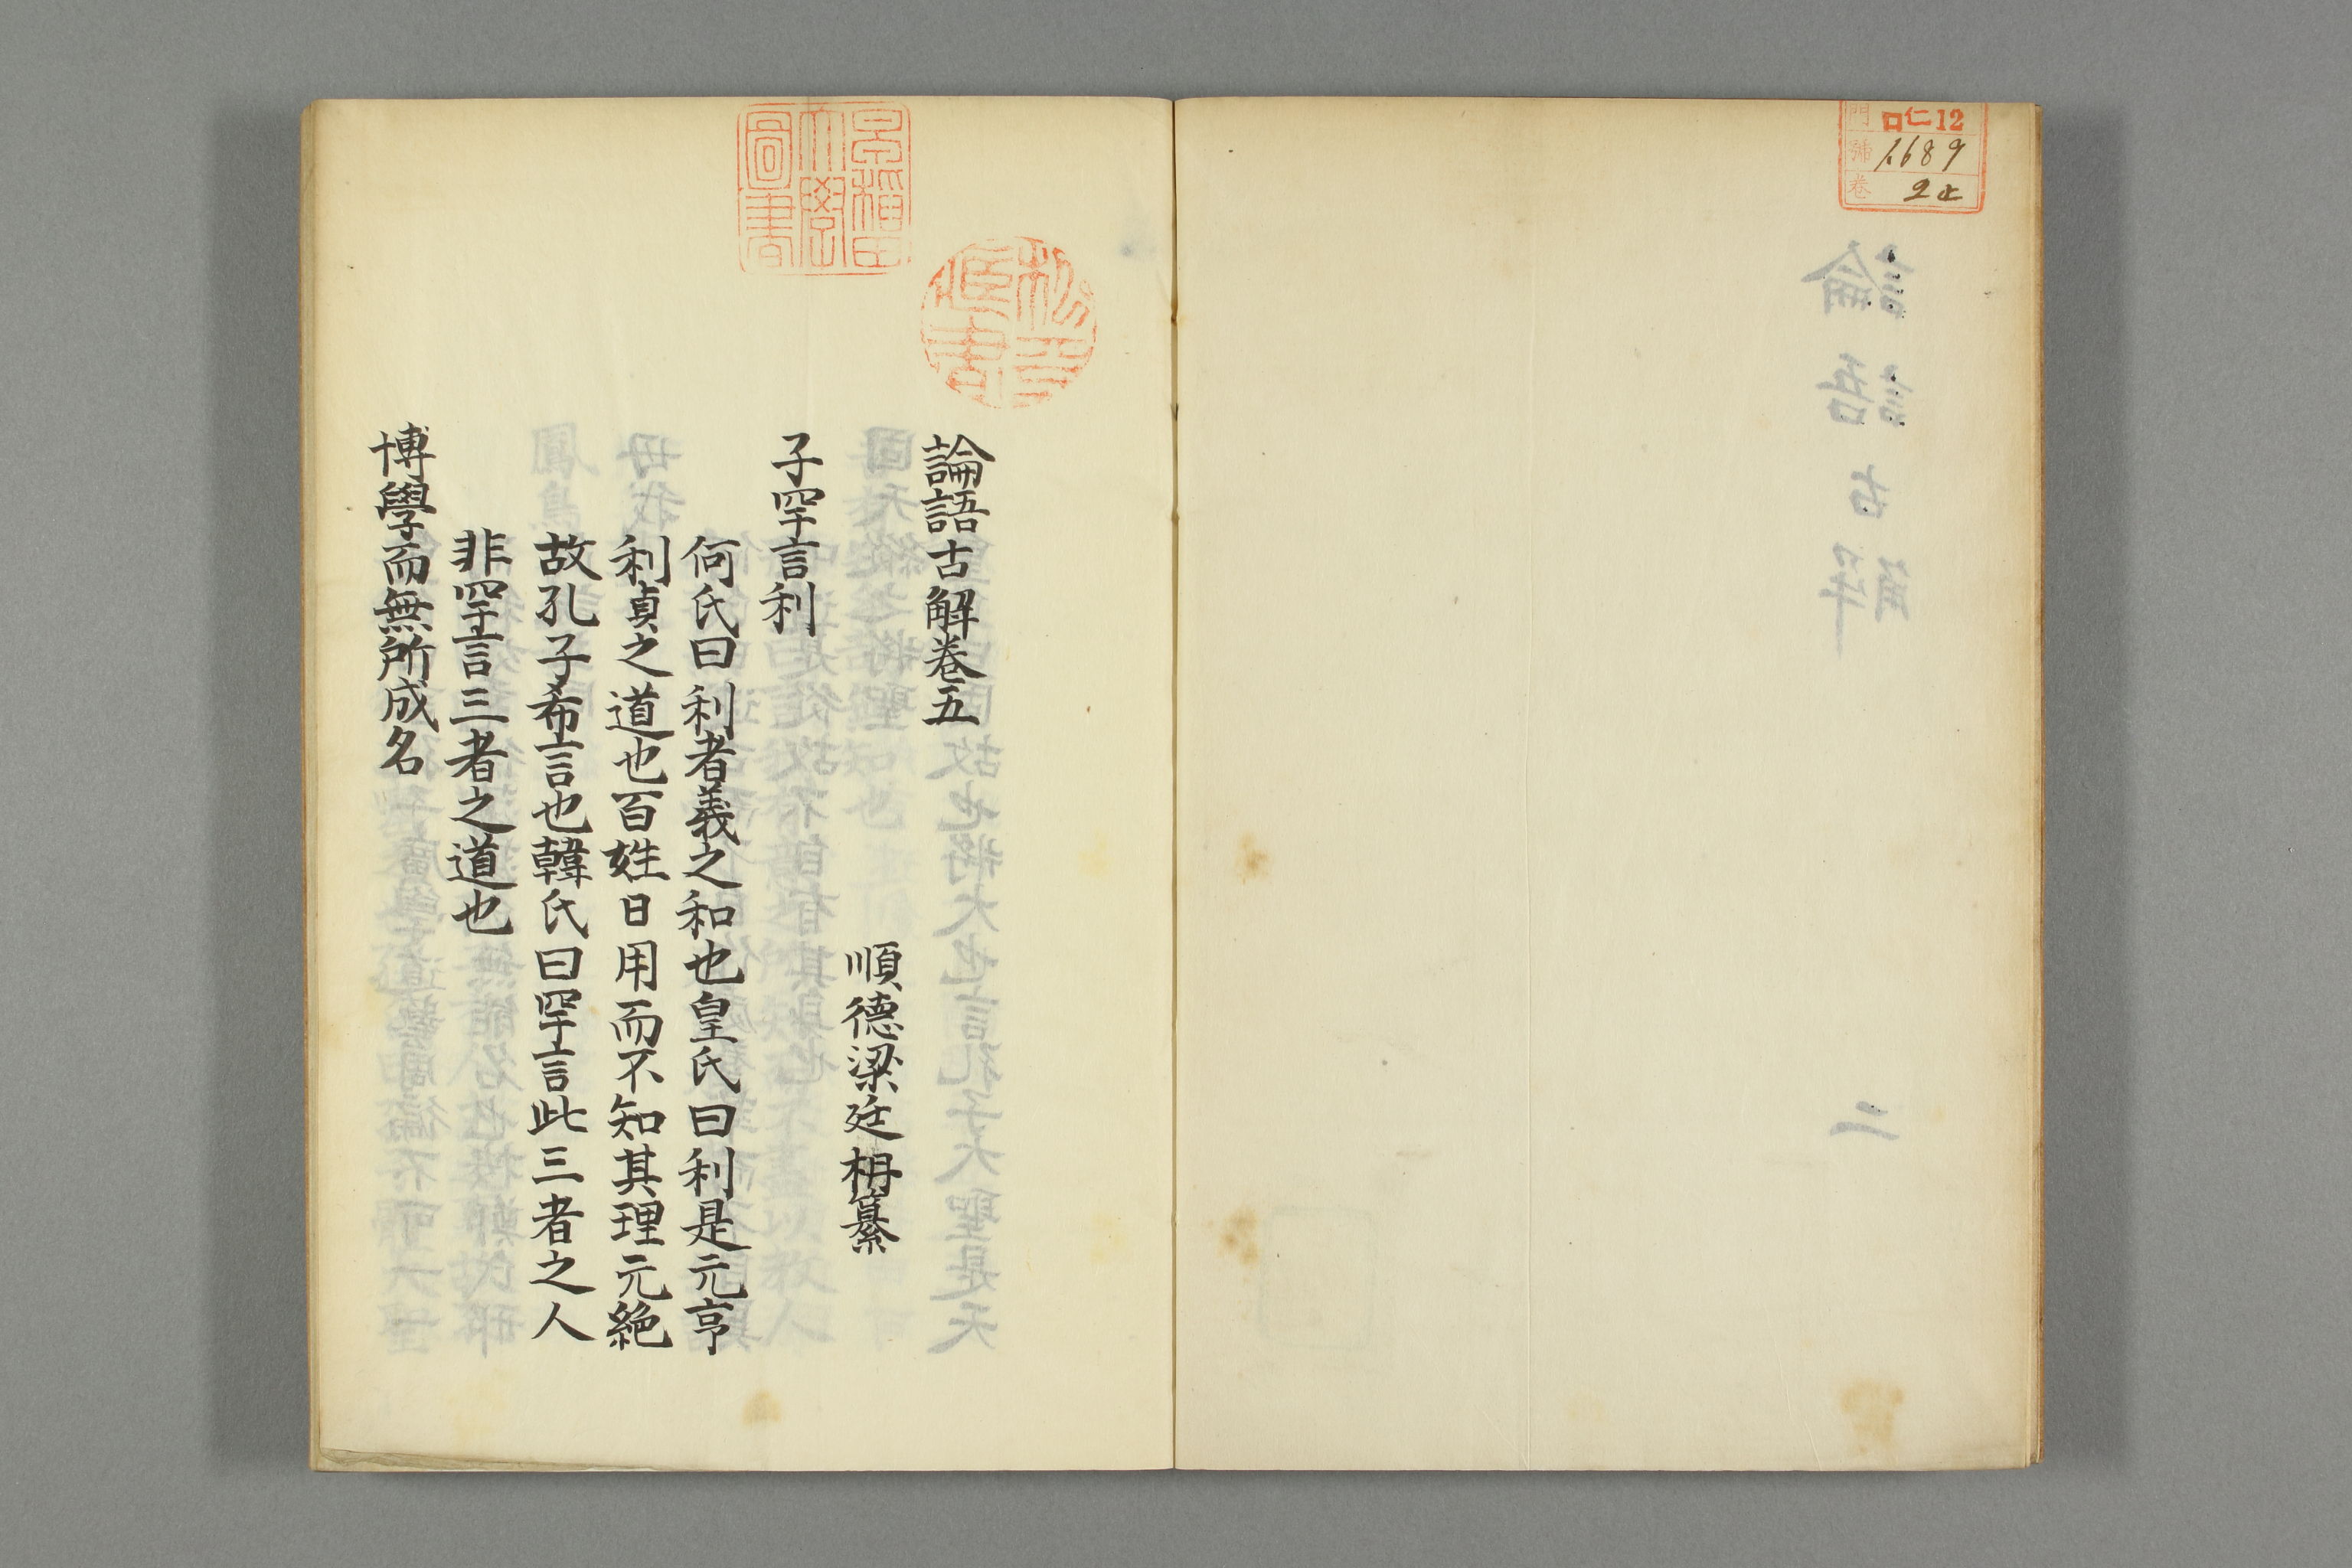 門 口仁12
號 1689
卷 2止
論語古解 二
早稻田
大學
圖書
論語古解卷五
順德梁廷枏纂
子罕言利
何氏曰利者義之和也皇氏曰利是元亨
利貞之道也百姓日用而不知其理元絶
故孔子希言也韓氏曰罕言此三者之人
非罕言三者之道也
博學而無所成名